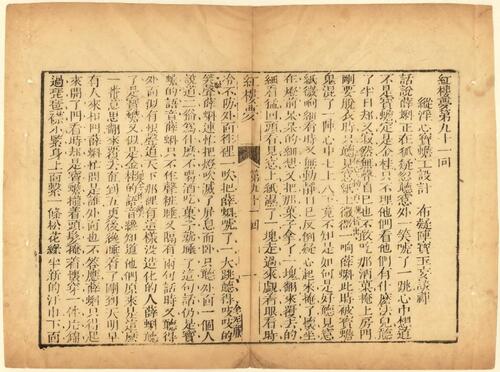 紅樓夢第九十一回
縱淫心寶蟾工設計 布疑陣寶玉妄談禪
話說薛蝌正在狐疑忽聽窗外一笑唬了一跳心中想道
不是寶蟾定是金桂只不理他們看他們有什麼法兒聽
了半日却又寂然無聲自己也不敢吃那酒菓掩上房門
剛要脫衣時只聽見窗紙上微微一响薛蝌此時被寶蟾
鬼混了一陣心中七上八下竟不知是如何是好聽見窗
紙微响細看時又無動靜自己反倒疑心起來掩了懷坐
在燈前呆呆的細想又把那菓子拿了一塊翻來覆去的
細看猛回頭看見窗上紙濕了一塊走過來覷着眼看時
紅樓夢 第九十一回
冷不防外面往裡一吹把薛蝌唬了一大跳聽得吱吱的
笑聲薛蝌連忙把燈吹滅了屏息而卧只聽外面一個人
說道二爺爲什麼不喝酒吃菓子就睡了這句話仍是寶
蟾的語音薛蝌只不作聲粧睡又隔有兩句話時又聽得
外面似有恨聲道天下那裡有這樣没造化的人薛蝌聽
了是寶蟾又似是金桂的語音纔知道他們原來是這麼
一番意思翻來覆去直到五更後纔睡着了剛到天明早
有人來扣門薛蝌忙問是誰外面也不答應薛蝌只得起
來開了門看時却是寶蟾攏着頭髮掩着懷穿一件片錦
邊琵琶襟小緊身上面繫一條松花綠半新的汗巾下面